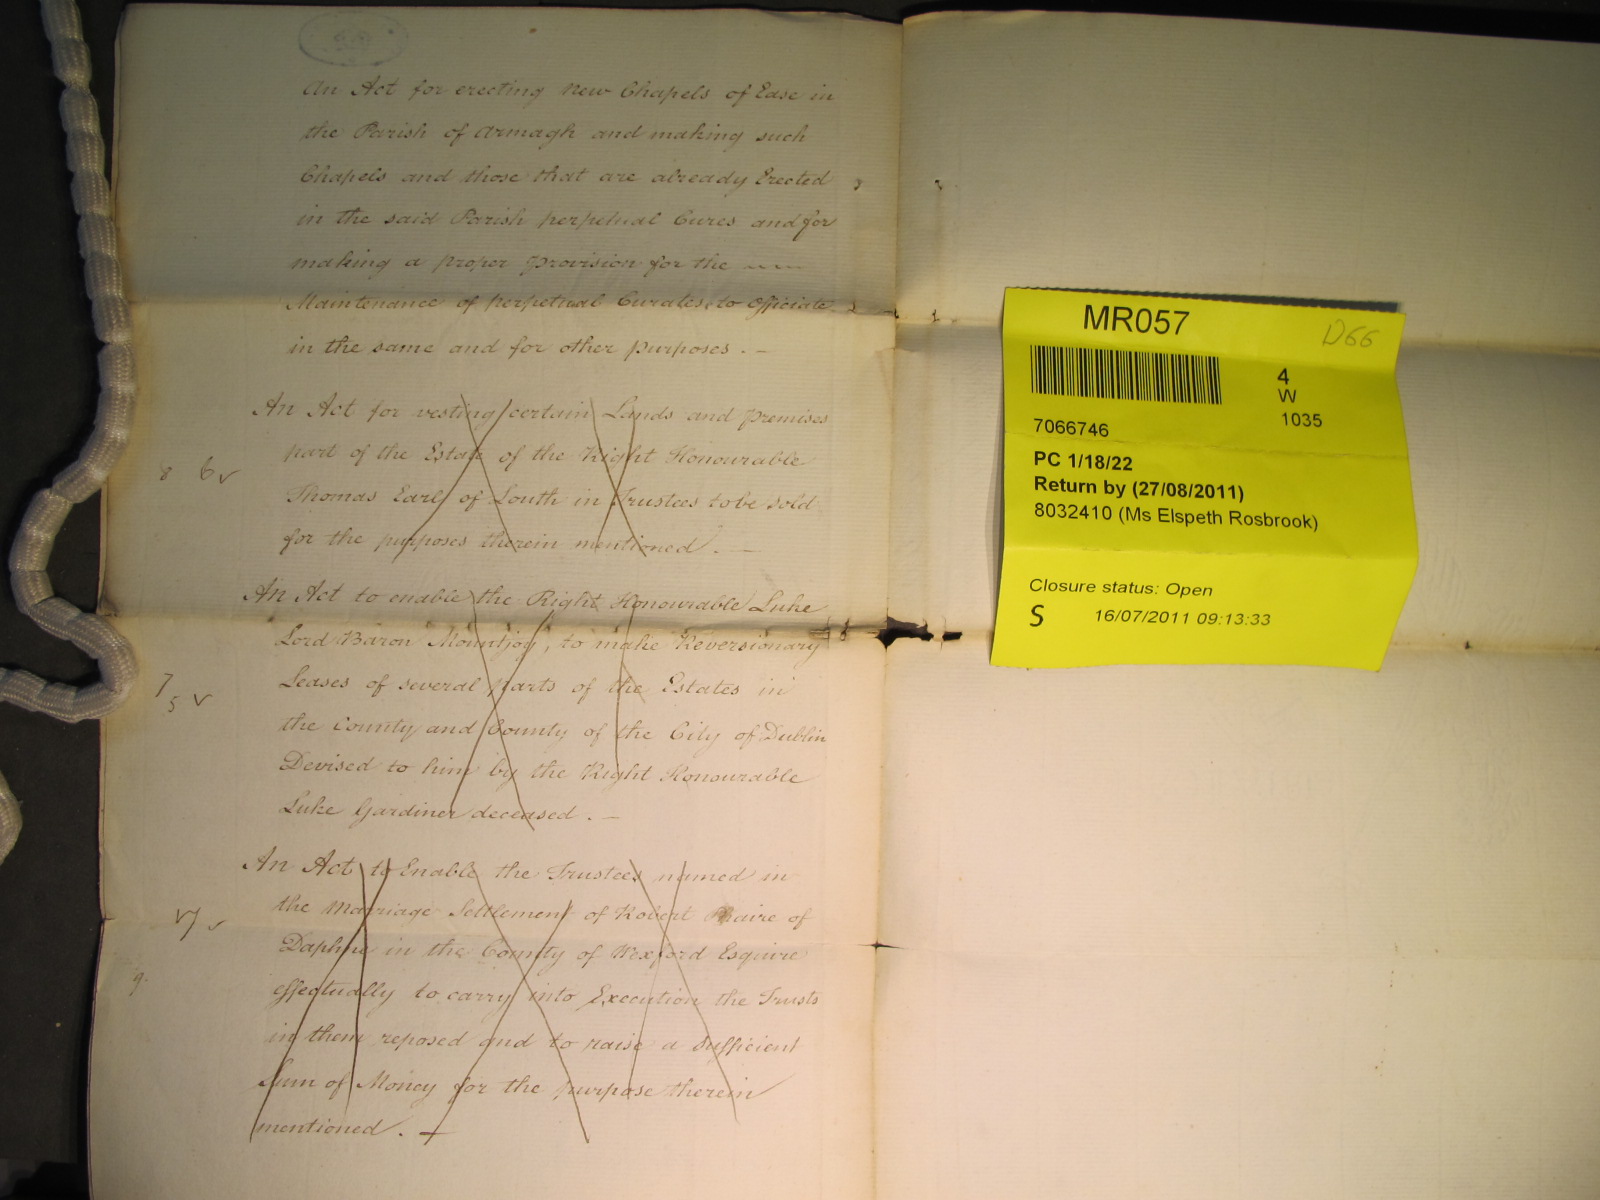 An Act for erecting New Chapels of Ease in
the Parish of Armagh and making such
Chapels and those that are already Erected
in the said Parish perpetual Cures and for
making a proper Provision for the
Maintenance of perpetual Curates to Officiate
in the same and for other purposes. —
An Act for vesting certain Lands and Premises
part of the Estate of the Right Honourable
8 6 Thomas Earl of Louth in Trustees to be sold
for the purposes therein mentioned. —
An Act to enable the Right Honourable Luke
Lord Baron Mountjoy, to make Reversionary
7 5 Leases of several parts of the Estates in
the County and County of the City of Dublin
Devised to him by the Right Honourable
Luke Gardiner deceased. —
An Act to Enable the Trustees named in
the Marriage Settlement of Robert of
Daphne in the County of Wexford Esquire
9 effectually to carry into Execution the Trusts
in them reposed and to raise a sufficient
Sum of Money for the purpose therein
mentioned. —
MR057
D66
4
W
1035
7066746
PC 1/18/22
Return by (27/08/2011)
8032410 (Ms Elspeth Rosbrook)
Closure status: Open
S 16/07/2011 09:13:33